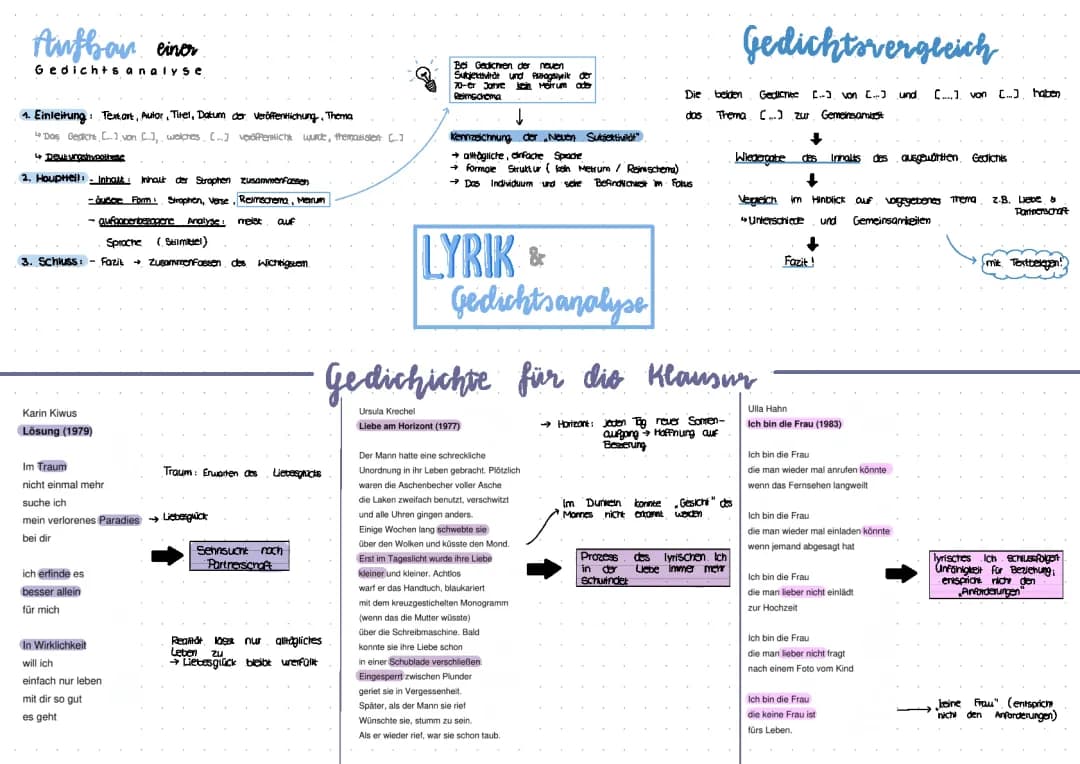 Aufbau einer
Gedichtsanalyse
1. Einleitung: Textart, Autor, Titel, Datum der Veröffentlichung, Thema
↳ Das Gedicht [...] von [...], welches [...] veröffentlicht wurde, thematisiert [...]
↳ Deutungshypothese
2. Hauptteil: - Inhalt: Inhalt der Strophen zusammenfassen
- äußere Form: Strophen, Verse, Reimschema, Metrum
- aufgabenbezogene Analyse: meist auf
Sprache (Stilmittel)
3. Schluss: - Fazit → Zusammenfassen des Wichtigsten
Bei Gedichten der neuen
Subjektivität und Alltagslyrik der
70-er Jahre kein Metrum oder
Reimschema
Kennzeichnung der „Neuen Subjektivität"
→ alltägliche, einfache Sprache
→ formale Struktur (kein Metrum / Reimschema)
→ Das Individuum und seine Befindlichkeit im Fokus
LYRIK &
Gedichtsanalyse
Gedichtsvergleich
Die beiden Gedichte [...] von [...] und [....] von [...] haben
das Thema [...] zur Gemeinsamkeit
Wiedergabe des Inhalts des ausgewählten Gedichts
Vergleich im Hinblick auf vorgegebenes Thema z.B. Liebe &
Partnerschaft
↳ Unterschiede und Gemeinsamkeiten
Fazit!
mit Textbelegen!
Gedichichte für die Klausur
Karin Kiwus
Lösung (1979)
Im Traum
nicht einmal mehr
suche ich
mein verlorenes Paradies
bei dir
ich erfinde es
besser allein
für mich
In Wirklichkeit
will ich
einfach nur leben
mit dir so gut
es geht
Traum: Erwarten des Liebesglücks
→ Liebesglück
Sehnsucht nach
Partnerschaft
Realität lässt nur alltägliches
Leben zu
→ Liebesglück bleibt unerfüllt
Ursula Krechel
Liebe am Horizont (1977)
Der Mann hatte eine schreckliche
Unordnung in ihr Leben gebracht. Plötzlich
waren die Aschenbecher voller Asche
die Laken zweifach benutzt, verschwitzt
und alle Uhren gingen anders.
Einige Wochen lang schwebte sie
über den Wolken und küsste den Mond.
Erst im Tageslicht wurde ihre Liebe
kleiner und kleiner. Achtlos
warf er das Handtuch, blaukariert
mit dem kreuzgestichelten Monogramm
(wenn das die Mutter wüsste)
über die Schreibmaschine. Bald
konnte sie ihre Liebe schon
in einer Schublade verschließen.
Eingesperrt zwischen Plunder
geriet sie in Vergessenheit.
Später, als der Mann sie rief
Wünschte sie, stumm zu sein.
Als er wieder rief, war sie schon taub.
→ Horizont: jeden Tag neuer Sonnen-
aufgang → Hoffnung auf
Besserung
Im Dunkeln konnte „Gesicht" des
Mannes nicht erkannt werden
Prozess des lyrischen Ich
in der Liebe immer mehr
schwindet
Ulla Hahn
Ich bin die Frau (1983)
Ich bin die Frau
die man wieder mal anrufen könnte
wenn das Fernsehen langweilt
Ich bin die Frau
die man wieder mal einladen könnte
wenn jemand abgesagt hat
Ich bin die Frau
die man lieber nicht einlädt
zur Hochzeit
Ich bin die Frau
die man lieber nicht fragt
nach einem Foto vom Kind
Ich bin die Frau
die keine Frau ist
fürs Leben.
lyrisches Ich schlussfolgert
Unfähigkeit für Beziehung,
entspricht nicht den
„Anforderungen"
„keine Frau" (entspricht
nicht den Anforderungen)